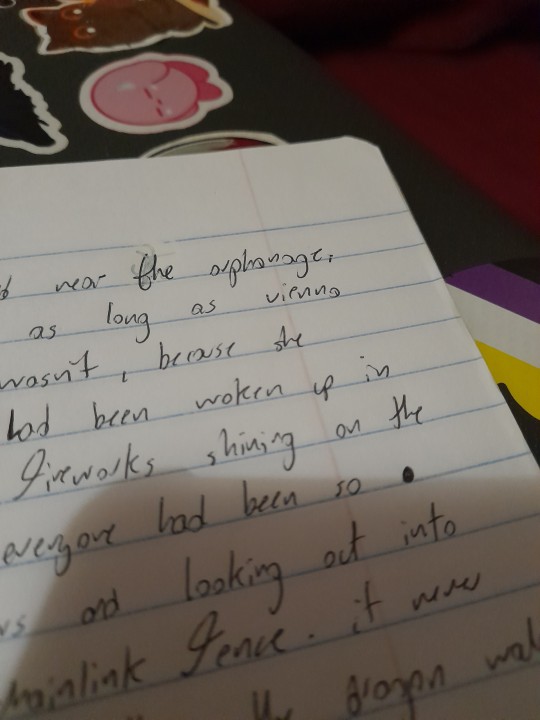 near the orphanage,
as long as vienna
wasn't, because she
had been woken up in
fireworks shining on the
everyone had been so
and looking out into
hainlink fence. it never